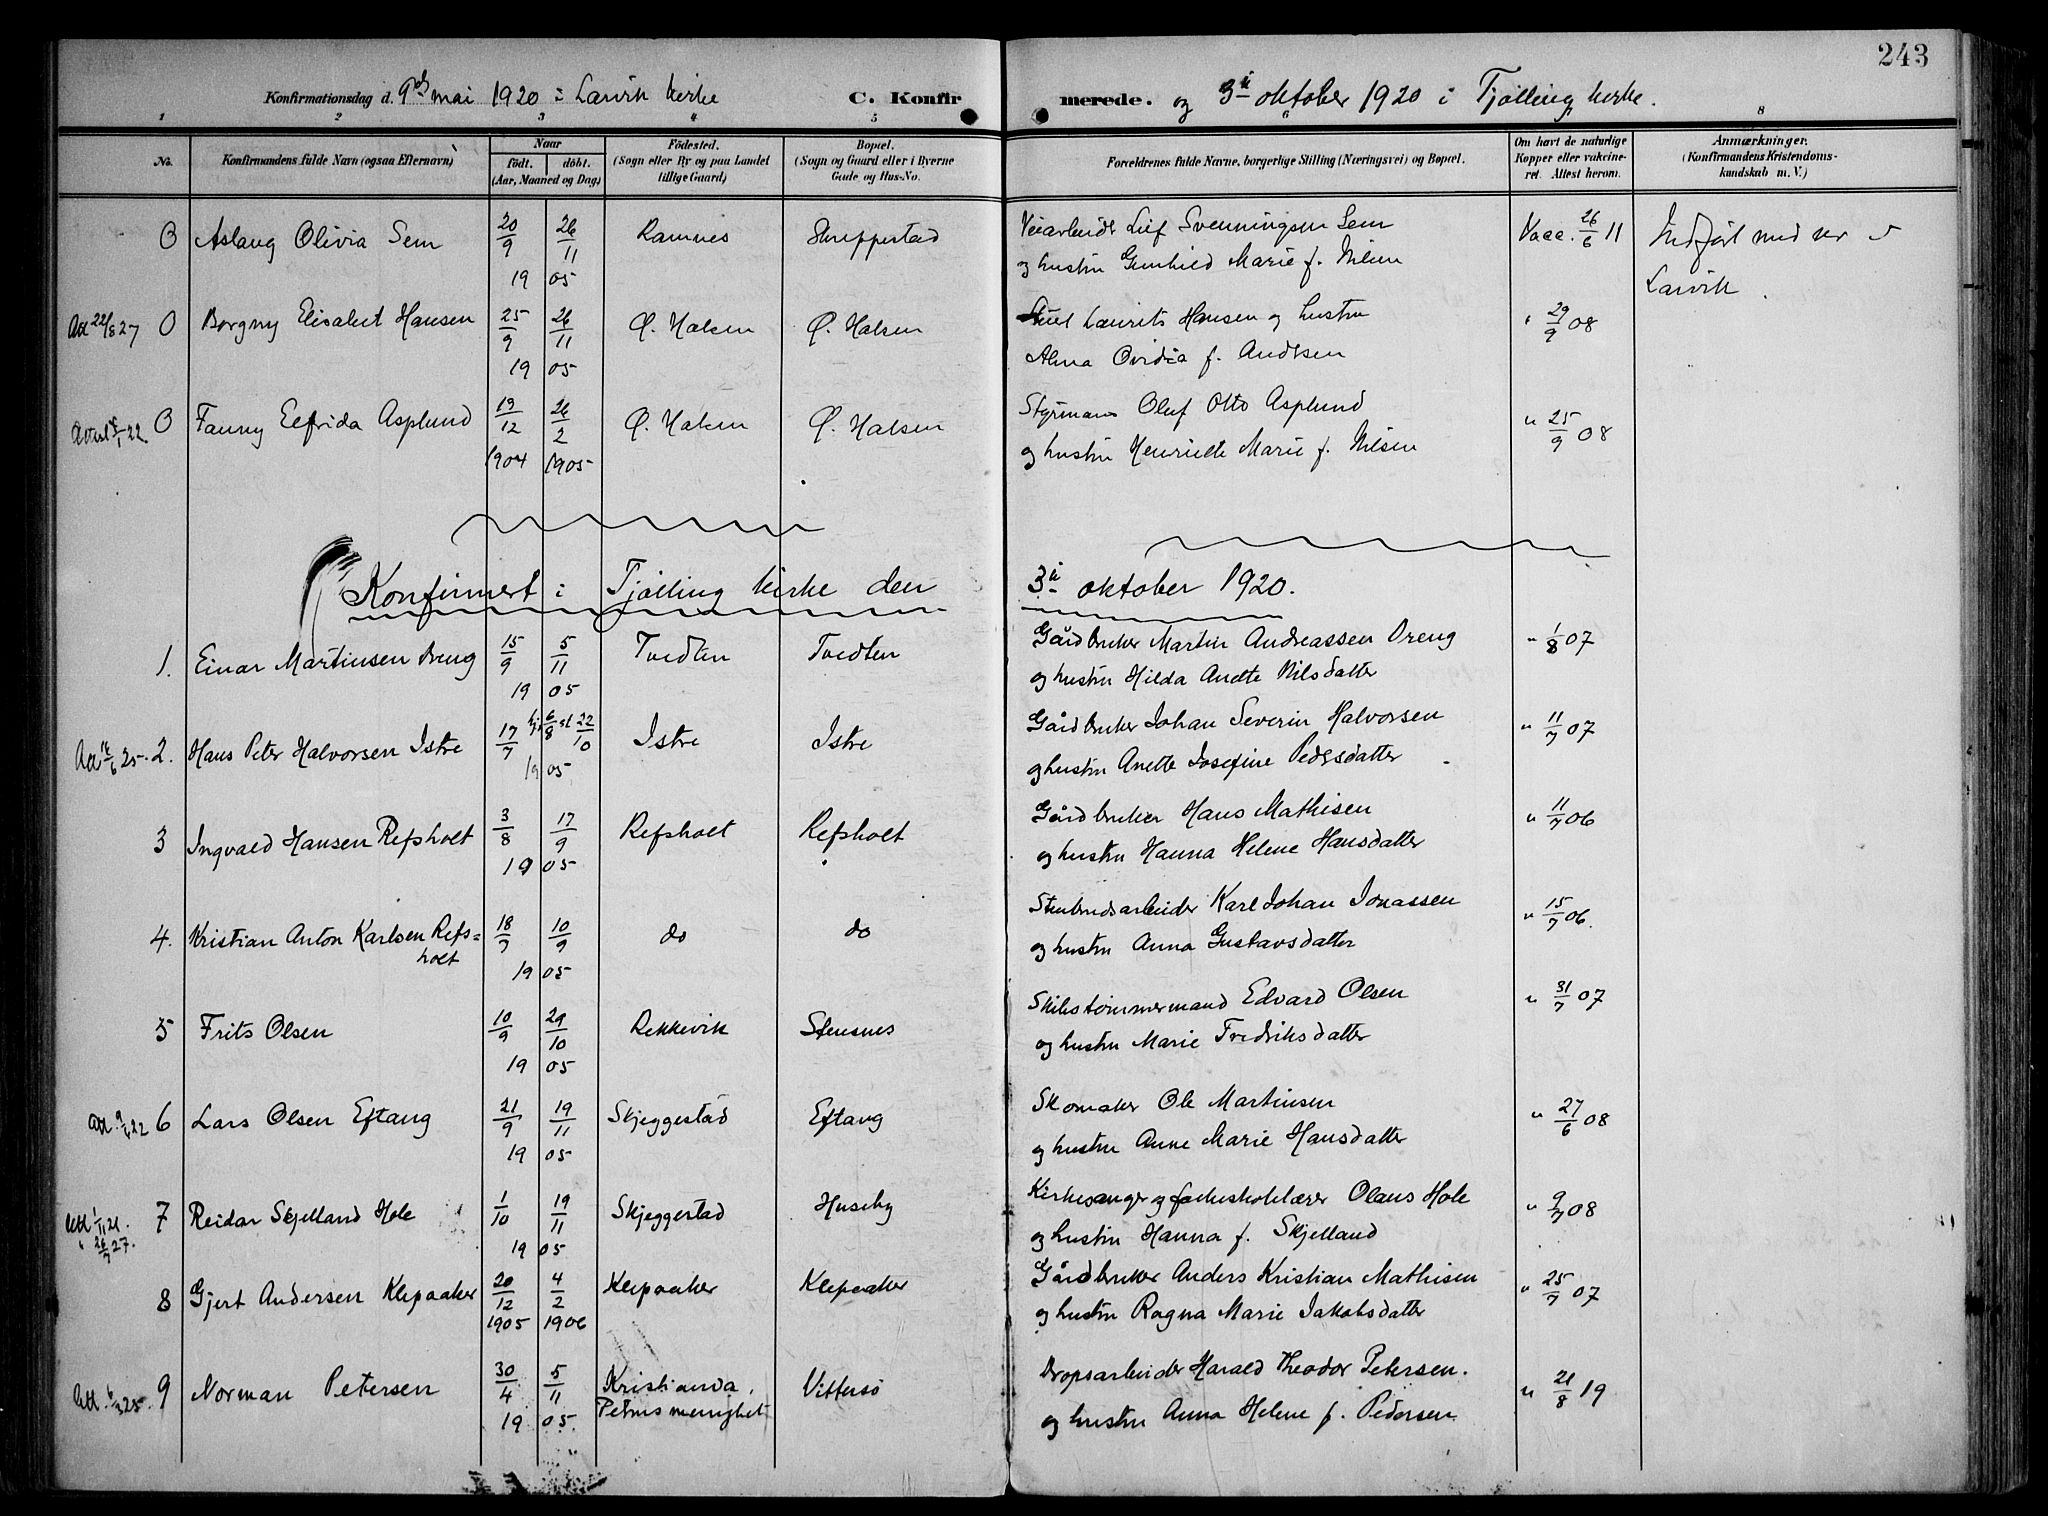 243
Konfirmationsdag d. 9de mai 1920 i Larvik kirke C. Konfirmerede. og 3die oktober 1920 i Tjølling kirke.
1 2 3 4 5 6 8
No. Konfirmandens fulde Navn (ogsaa Efternavn) Naar født. døbt. (Aar, Maaned og Dag) Fødested. (Sogn eller By og paa Landet tillige Gaard) Bopæl. (Sogn og Gaard eller i Byerne Gade og Hus-No. Forældrenes fulde Navne, borgerlige Stilling (Næringsvei) og Bopæl. Om havt de naturlige Kopper eller vakcineret. Attest herom. Anmærkninger. (Konfirmandens Kristendomskundskab m. V.)
0 Aslaug Olivia Sem 20/9 26/11 Ramnes Skreppestad Veiarbeider Leif Svenningsen Sem Vacc. 26/6 11 Indført med ner
19 05 og hustru Gunhild Marie f. Nilsen Larvik.
Att 22/8 27 0 Borgny Elisabet Hansen 25/9 26/11 Ø. Halsen Ø. Halsen Laurits Hansen og hustru " 29/9 08
19 05 Alma Ovidia f. Andersen
0 Fanny Elfrida Asplund 19/12 26/2 Ø. Halsen Ø. Halsen Styrmann Oluf Otto Asplund " 25/9 08
1904 1905 og hustru Henriette Marie f. Nilsen
Konfirmert i Tjølling kirke den 3die oktober 1920.
1. Einar Martinsen Dreng 15/9 5/11 Tvedten Tvedten Gårdbruker Martin Andreassen Dreng " 1/8 07
19 05 og hustru Hilda Anette Nilsdatter
Att 16/6 25. 2. Hans Peter Halvorsen Istre 17/7 hj 6/8 st 22/10 Istre Istre Gårdbruker Johan Severin Halvorsen " 11/7 07
19 05 og hustru Anette Josefine Pedersdatter
3 Ingvald Hansen Refsholt 3/8 17/9 Refsholt Refsholt Gårdbruker Hans Mathisen " 11/7 06
19 05 og hustru Hanna Helene Hansdatter
4. Kristian Anton Karlsen Refs= 18/7 10/9 do do Stenbrudsarbeider Karl Johan Jonassen " 15/7 06.
holt 19 05 og hustru Anna Gustavsdatter
5 Frits Olsen 10/9 29/10 Rekkevik Stensnes Skibstømmermand Edvard Olsen " 31/7 07
19 05 og hustru Marie Fredriksdatter
6 Lars Olsen Eftang 21/9 19/11 Skjeggestad Eftang Skomaker Ole Martinsen " 27/6 08
19 05 og hustru Anne Marie Hansdatter
Att 1/11 21. 7 Reidar Skjelland Hole 1/10 19/11 Skjeggestad Huseby Kirkesanger og folkeskolelærer Olaus Hole " 9/7 08
" 26/7 27. 19 05 og hustru Hanna f. Skjelland
8 Gjert Andersen Klepaaker 20/12 4/2 Klepaaker Klepaaker Gårdbruker Anders Kristian Mathisen " 25/7 07
1905 1906 og hustru Ragna Marie Jakobsdatter
Att. 6/3 25. 9 Norman Petersen 30/4 5/11 Kristiania, Vittersø Dropsarbeider Harald Theodor Petersen. " 21/8 19
19 05. Petrus menighet og hustru Anna Helene f. Pedersen